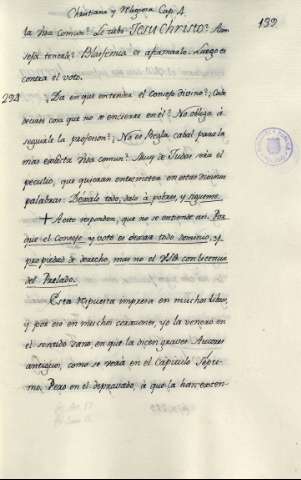 Christiana y Religiosa Cap. 4.
139
la vida comun? Le calló Jesu Christo?
seso tenerle? Blasfemia es afirmarlo. Luego es
contra el voto.
292 Ya en que entendia el consejo divino? Cabe
decirse cosa que no se encierre en él? No obliga à
seguirle la profesion? No es Regla cabal para la
mas exâcta vida comun? Muy de Judas sera el
peculio, que quieran entremeterse en estas divinas
palabras: Dexalo todo, dalo à pobres, y sigueme.
+ A esto responden, que no se entiende asi. Por
que el Consejo y voto es dexar todo dominio, y
propiedad de derecho, mas no el Uso con licencia
del Prelado.
Esta respuesta impresa en muchos libros,
y por eso en muchos corazones, yo la venero en
el sentido sano, en que la dicen graves Autores
antiguos, como se verá en el Capitulo Septi-
mo. Pero en el depravado, à que la han exten-